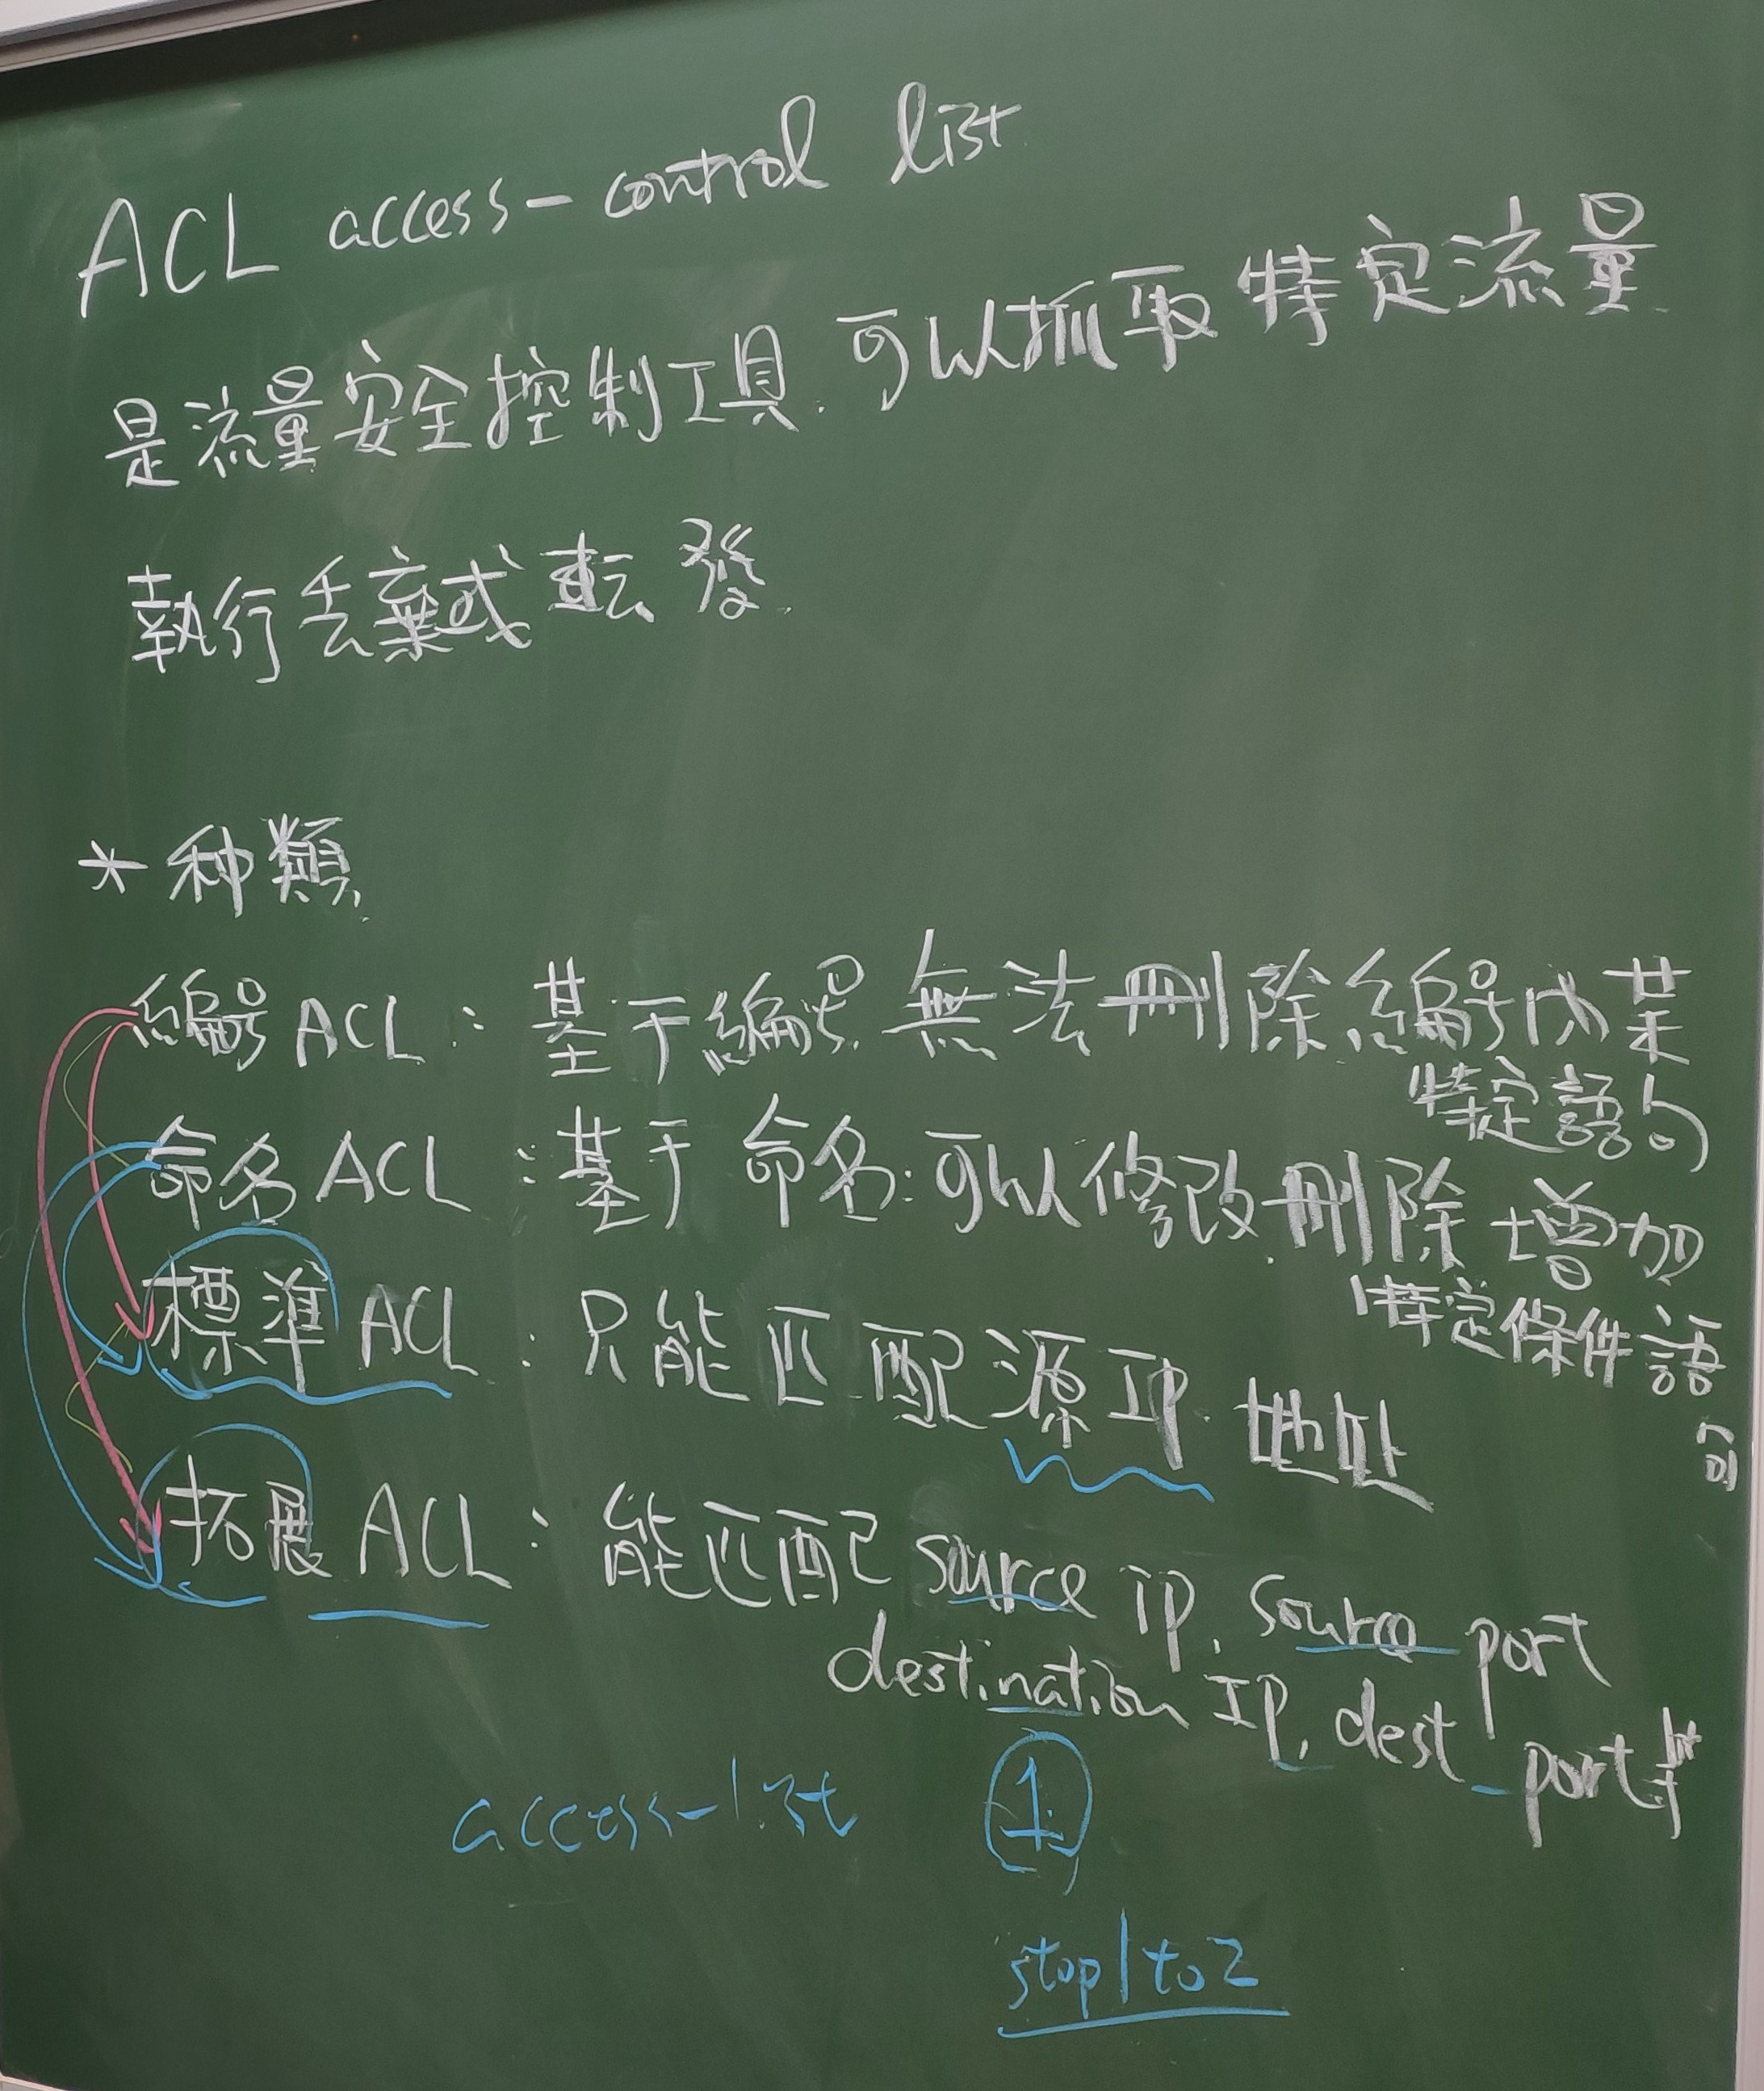 ACL access-control list
是流量安全控制工具.可以抓取特定流量
執行丢棄或転發.
*种類.
編号ACL:基于編号.無法刪除編号内某
特定語句
命名ACL:基于命名:可以修改.刪除增加
特定條件語句
標準ACL:只能匹配源IP地址
拓展ACL:能匹配source ip, source port
destination IP, dest port
access-list 1
stop1to2